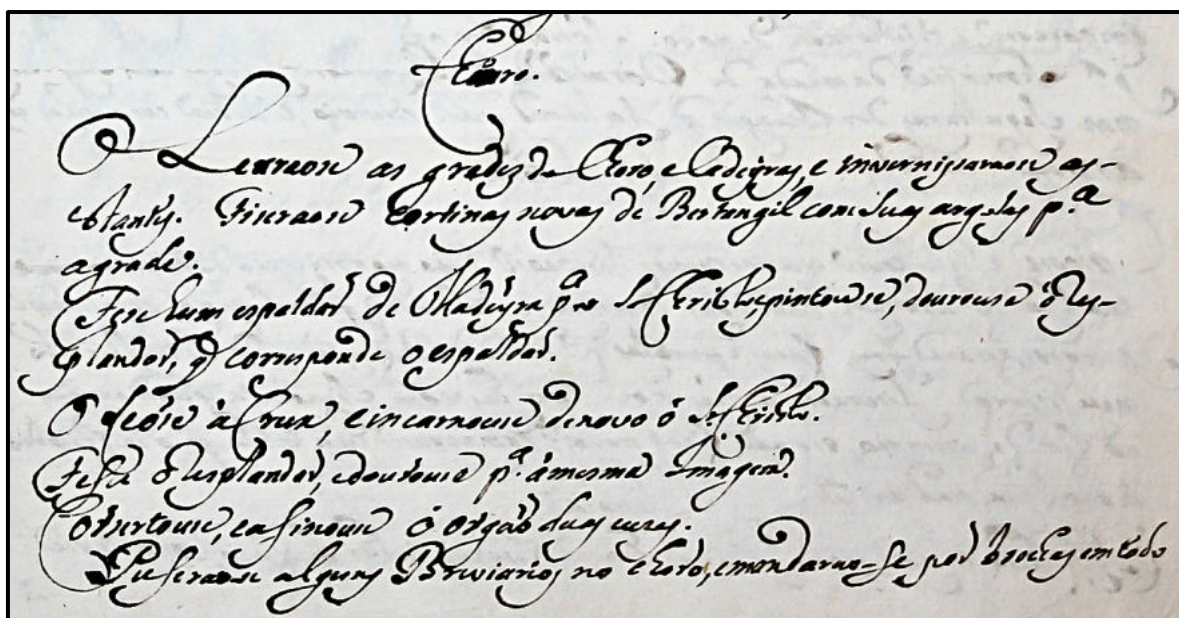 Choro.
Levraose as grades do Choro, e Cadeyras, e invernisaraose as es-
tantes. Fiseraose Cortinas novas de Bertangil com suas argolas p.ª
a grade.
Fese hum espaldar de Madeyra p.ª o S. Christo, e pintouse, dourouse ó Res-
plandor, q̃ corresponde o espaldar.
a Crux, e incarnouse de novo ó S. Christo.
Fese Resplandor, e dourouse p.ª á mesma Imagem.
Consertouse, e afinouse ó orgaõ duas vezes.
Puseraose alguns Breviarios no Choro, e mandarao-se por brochas em todo